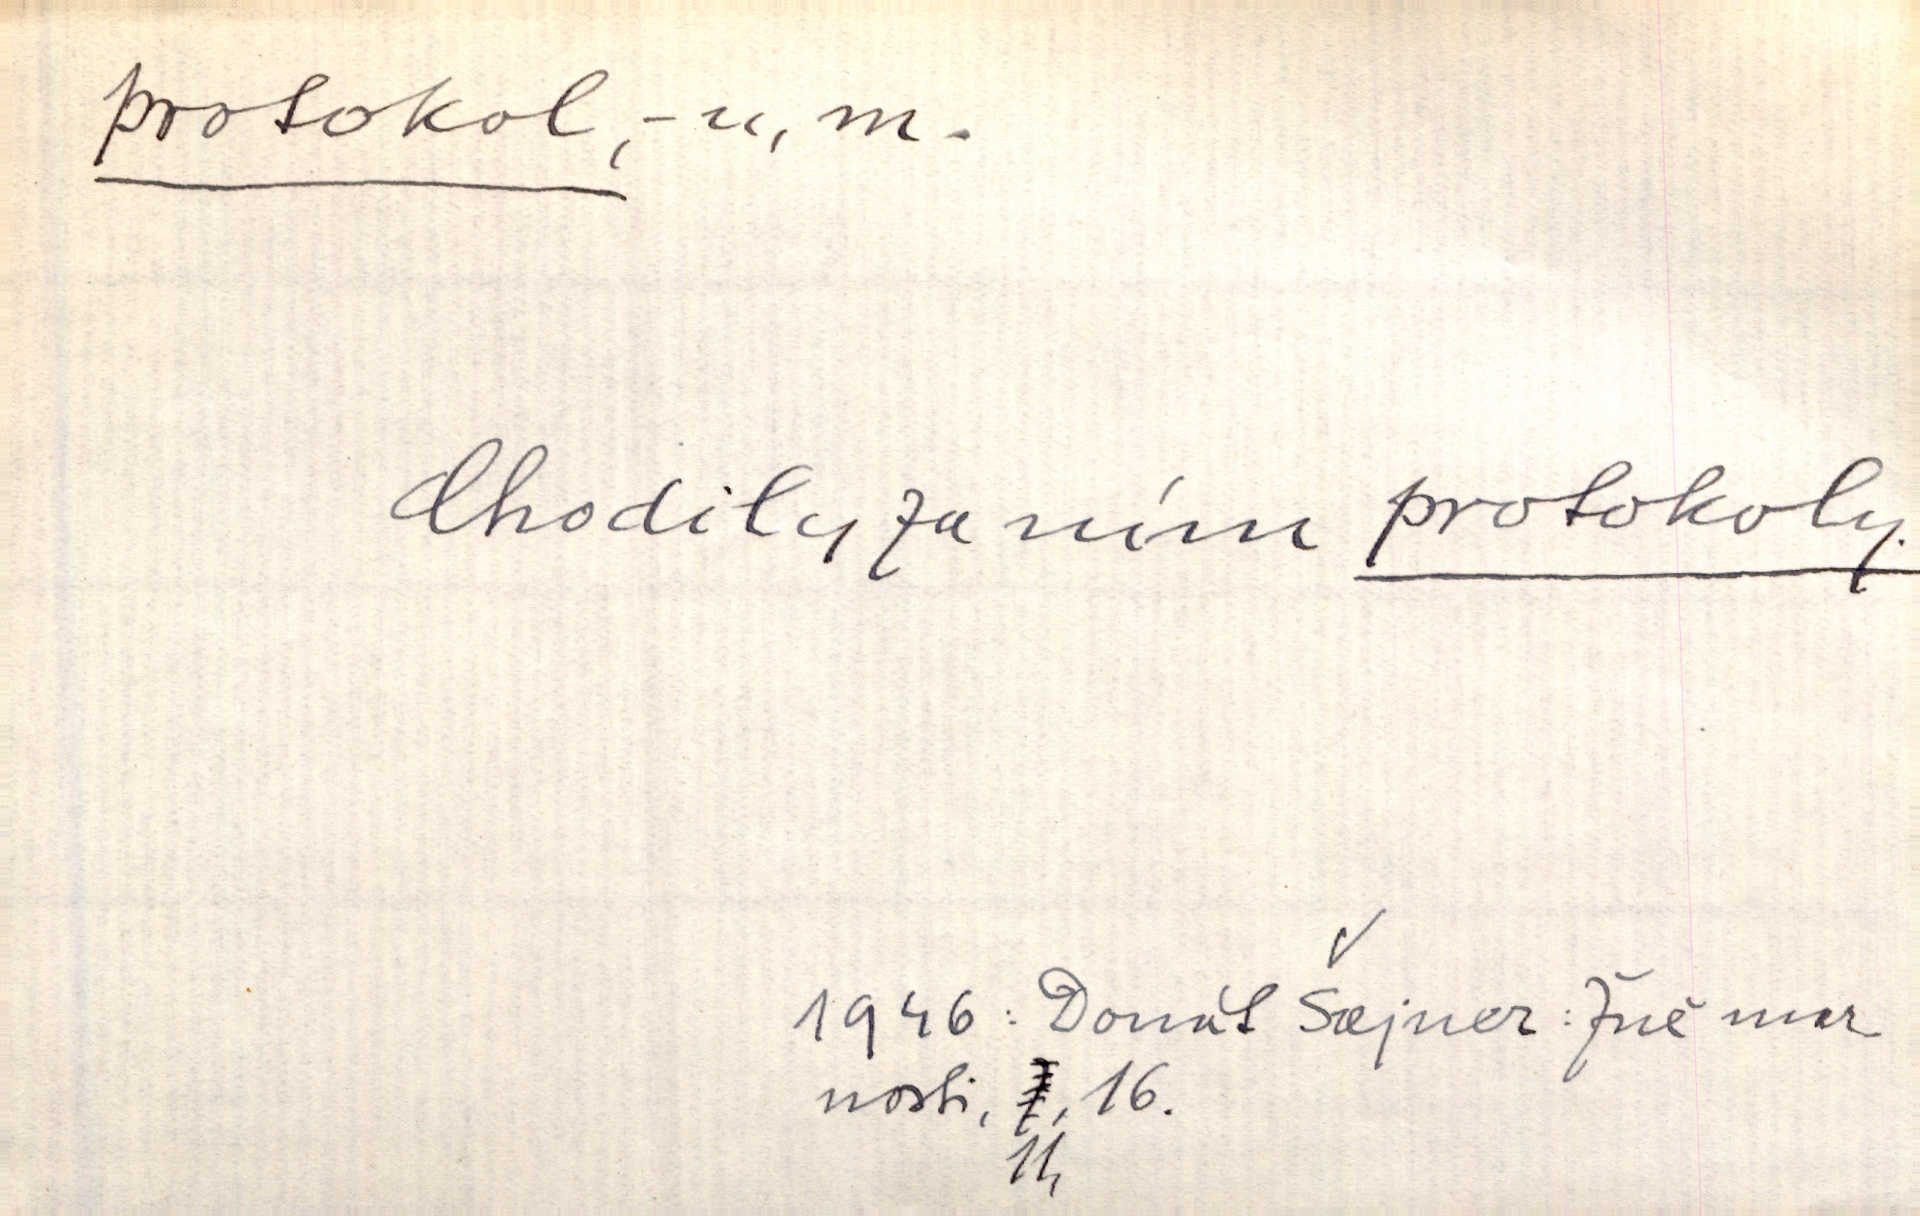 protokol, -u, m.
Chodily za ním protokoly.
1946: Donát Šajner: Žně mar
nosti, 16.
11,